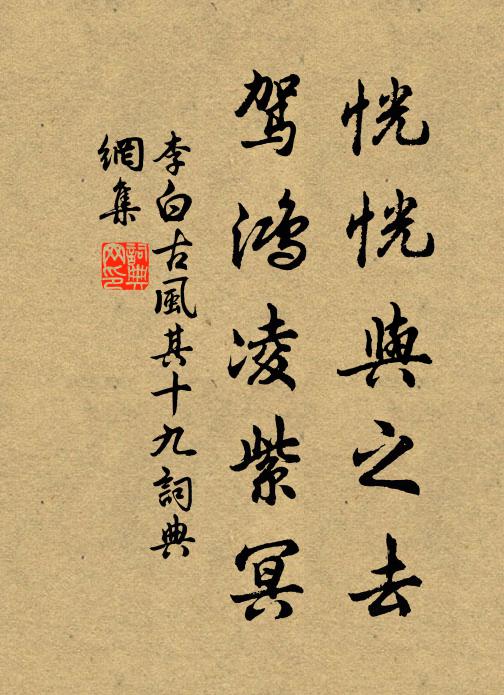 恍恍與之去
駕鴻凌紫冥
李白古風其十九詞典
網集
詞典
网印